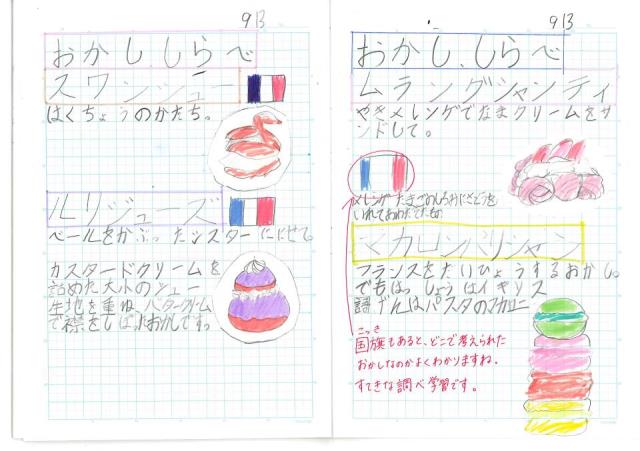 9/3
おかし、しらべ
スワンシュー
はくちょうのかたち。
ルリジューズ
ベールをかぶったシスターににせて。
カスタードクリームを
詰めた大小のシュー
生地を重ね、バタークリーム
で襟をしぼったおかしです。
9/3
おかし、しらべ
ムラングシャンティ
やきメレンゲでなまクリームをサ
ンドして。
メレンゲ たまごのしろみにさとうを
いれてあわだてたもの
マカロンパリジャン
フランスをだいひょうするおかし。
でもはっしょうはイギリス
語げんはパスタのマカロニ
こっき
国旗もあると、どこで考えられた
おかしなのかよくわかりますね。
すてきな調べ学習です。